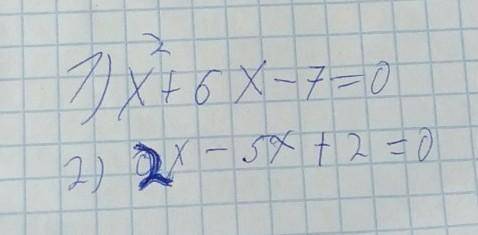 1) x² + 6x - 7 = 0
2) 2x - 5x + 2 = 0